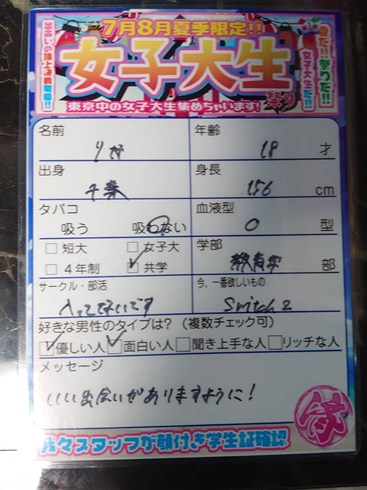 7月8月夏季限定!!
女子大生
祭り
東京中の女子大生集めちゃいます!
名前
年齢
18 才
出身
千葉
身長
156 cm
タバコ
吸う 吸わない
血液型
O 型
□短大 □女子大
□4年制 ☑共学
学部
教育学 部
サークル・部活
入ってないです
今、一番欲しいもの
Switch2
好きな男性のタイプは?(複数チェック可)
☑優しい人 ☑面白い人 □聞き上手な人 □リッチな人
メッセージ
いい出会いがありますように!
縁
スタッフが顔付き学生証確認